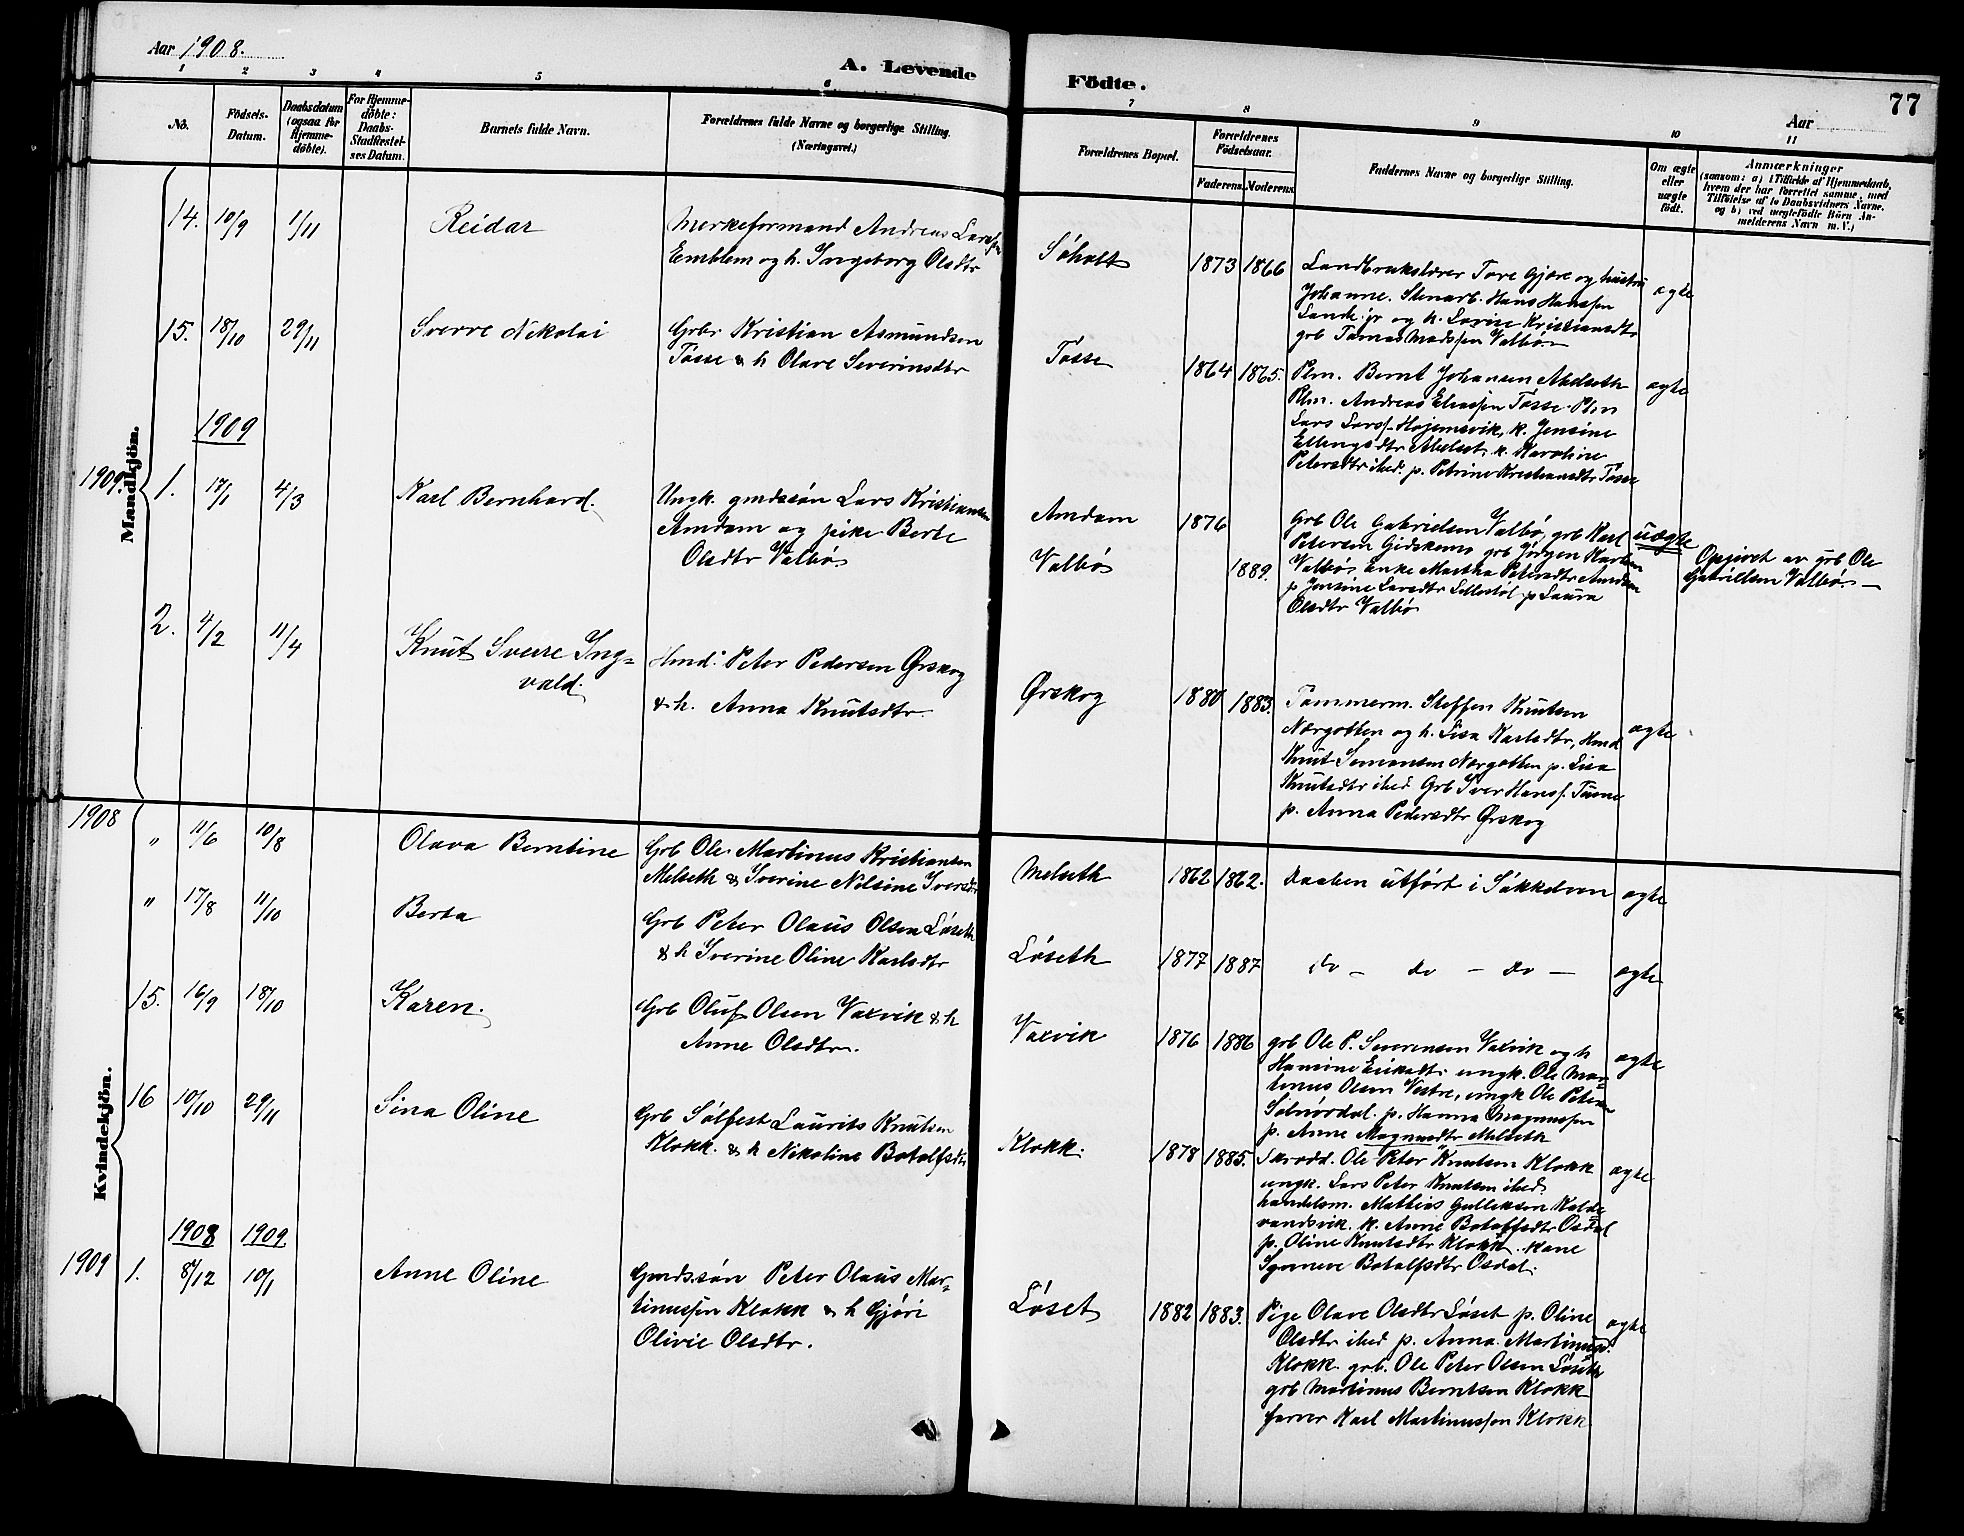 Aar 1908.
A. Levende
Födte.
77
Aar
1 2 3 4 5 6 7 8 9 10 11
No.
Födsels-
Datum.
Daabsdatum
(ogsaa for
Hjemme-
døbte).
For Hjemme-
døbte:
Daabs-
Stadfæstel-
ses Datum.
Barnets fulde Navn.
Forældrenes fulde Navne og borgerlige Stilling.
(Næringsvei.)
Forældrenes Bopæl.
Forældrenes
Födselsaar.
Faderens. Moderens.
Faddernes Navne og borgerlige Stilling.
Om ægte
eller
uægte
født.
Anmærkninger
(saasom: a) i Tilfælde af Hjemmedaab,
hvem der har forrettet samme, med
Tilføielse af to Daabsvidners Navne,
og b) ved uægtefødte Börn An-
melderens Navn m. V.)
Mandkjön.
14. 10/9 1/11 Reidar
Merkeformand Andreas Larssen
Emblem og h. Ingeborg Olsdtr
Søholt 1873 1866
Landbrukslærer Tore Gjøre og hustru
Johanne. Stenarb. Hans Hanssen
Lande jr og h. Lovise Kristiansdtr
grb Tomas Madssen Valbø
ægte
15. 18/10 29/11 Sverre Nikolai
Grbr Kristian Asmundsen
Tøsse & h Olave Severinsdtr
Tøsse 1864 1865.
Plm. Bernt Johansen Melseth
Plm. Andreas Eliassen Tøsse. Plm
Lars Larss. Højemsvik, k. Jensine
Ellingsdtr Melset k. Karoline
Petersdtr ibid. p. Petrine Kristiansdtr Tøsse
ægte
1909
1909. 1. 17/1 4/3 Karl Bernhard.
Ungk. gmdssøn Lars Kristiansen
Amdam og pike Berte
Olsdtr Valbø
Amdam 1876
Valbø 1889.
Grb Ole Gabrielsen Valbø, grb Karl
Petersen Gidskemo grb Jørgen Karlsen
Valbø Enke Martha Petersdtr Amdam
p Jensine Larsdtr Lillestøl p Laura
Olsdtr Valbø
uægte
Opgivet av grb Ole
Gabrielsen Valbø. —
2. 4/2 11/4 Knut Sverre Ing=
vald.
Hmd. Peter Pedersen Ørskog
& h. Anna Knutsdtr.
Ørskog 1880 1883.
Tømmerm. Steffen Knutsen
Nærgotten og h. Lisa Karlsdtr, Hmd
Knut Simonsen Nærgotten p. Lisa
Knutsdtr ibid Grb Iver Hanss. Tusne
p. Anna Pedersdtr Ørskog
ægte
Kvindekjön.
1908 " 11/6 10/8 Olava Berntine
Grb Ole Martinus Kristiansen
Melseth & Iverine Nilsine Iversdtr
Melseth 1862 1862.
Daaben utført i Søkkelven
ægte
" 17/8 11/10 Berta
Grb Peter Olaus Olsen Løseth
& h Iverine Oline Karlsdtr
Løseth 1877 1887
do — do — do —
ægte
15. 16/9 18/10 Karen.
Grb Oluf Olsen Vaxvik & h
Anne Olsdtr.
Vaxvik 1876 1886
grb Ole P. Severensen Vaxvik og h
Hansine Eriksdtr. ungk. Ole Mar-
tinus Olsen Vestre, ungk Ole Peter
Solnørdal. p. Hanna Magnussen
p. Anne Magnusdtr Melseth
ægte
16 10/10 29/11 Sina Oline
Grb Sølfest Laurits Knutsen
Klokk. & h Nikoline Botolfsdtr
Klokk. 1878 1885.
Skrædd. Ole Peter Knutsen Klokk
ungk. Lars Peter Knutsen ibid.
handelsm. Mattias Gulleksen Kalde
vandsvik. k. Anne Botolfsdtr Osdal
p. Oline Knutsdtr Klokk. kone
Synneve Botolfsdtr Osdal.
ægte
1908 1909.
1909 1. 8/12 10/1 Anne Oline
Gmdssøn Peter Olaus Mar-
tinussen Klokk & h Gjøri
Olivie Olsdtr.
Løset 1882 1883.
Pige Olave Olsdtr Løset p. Oline
Olsdtr ibid p. Anna Martinusd.
Klokk. grb. Ole Peter Olsen Løseth
grb Martinus Berntsen Klokk
farver Karl Martinussen Klokk
ægte